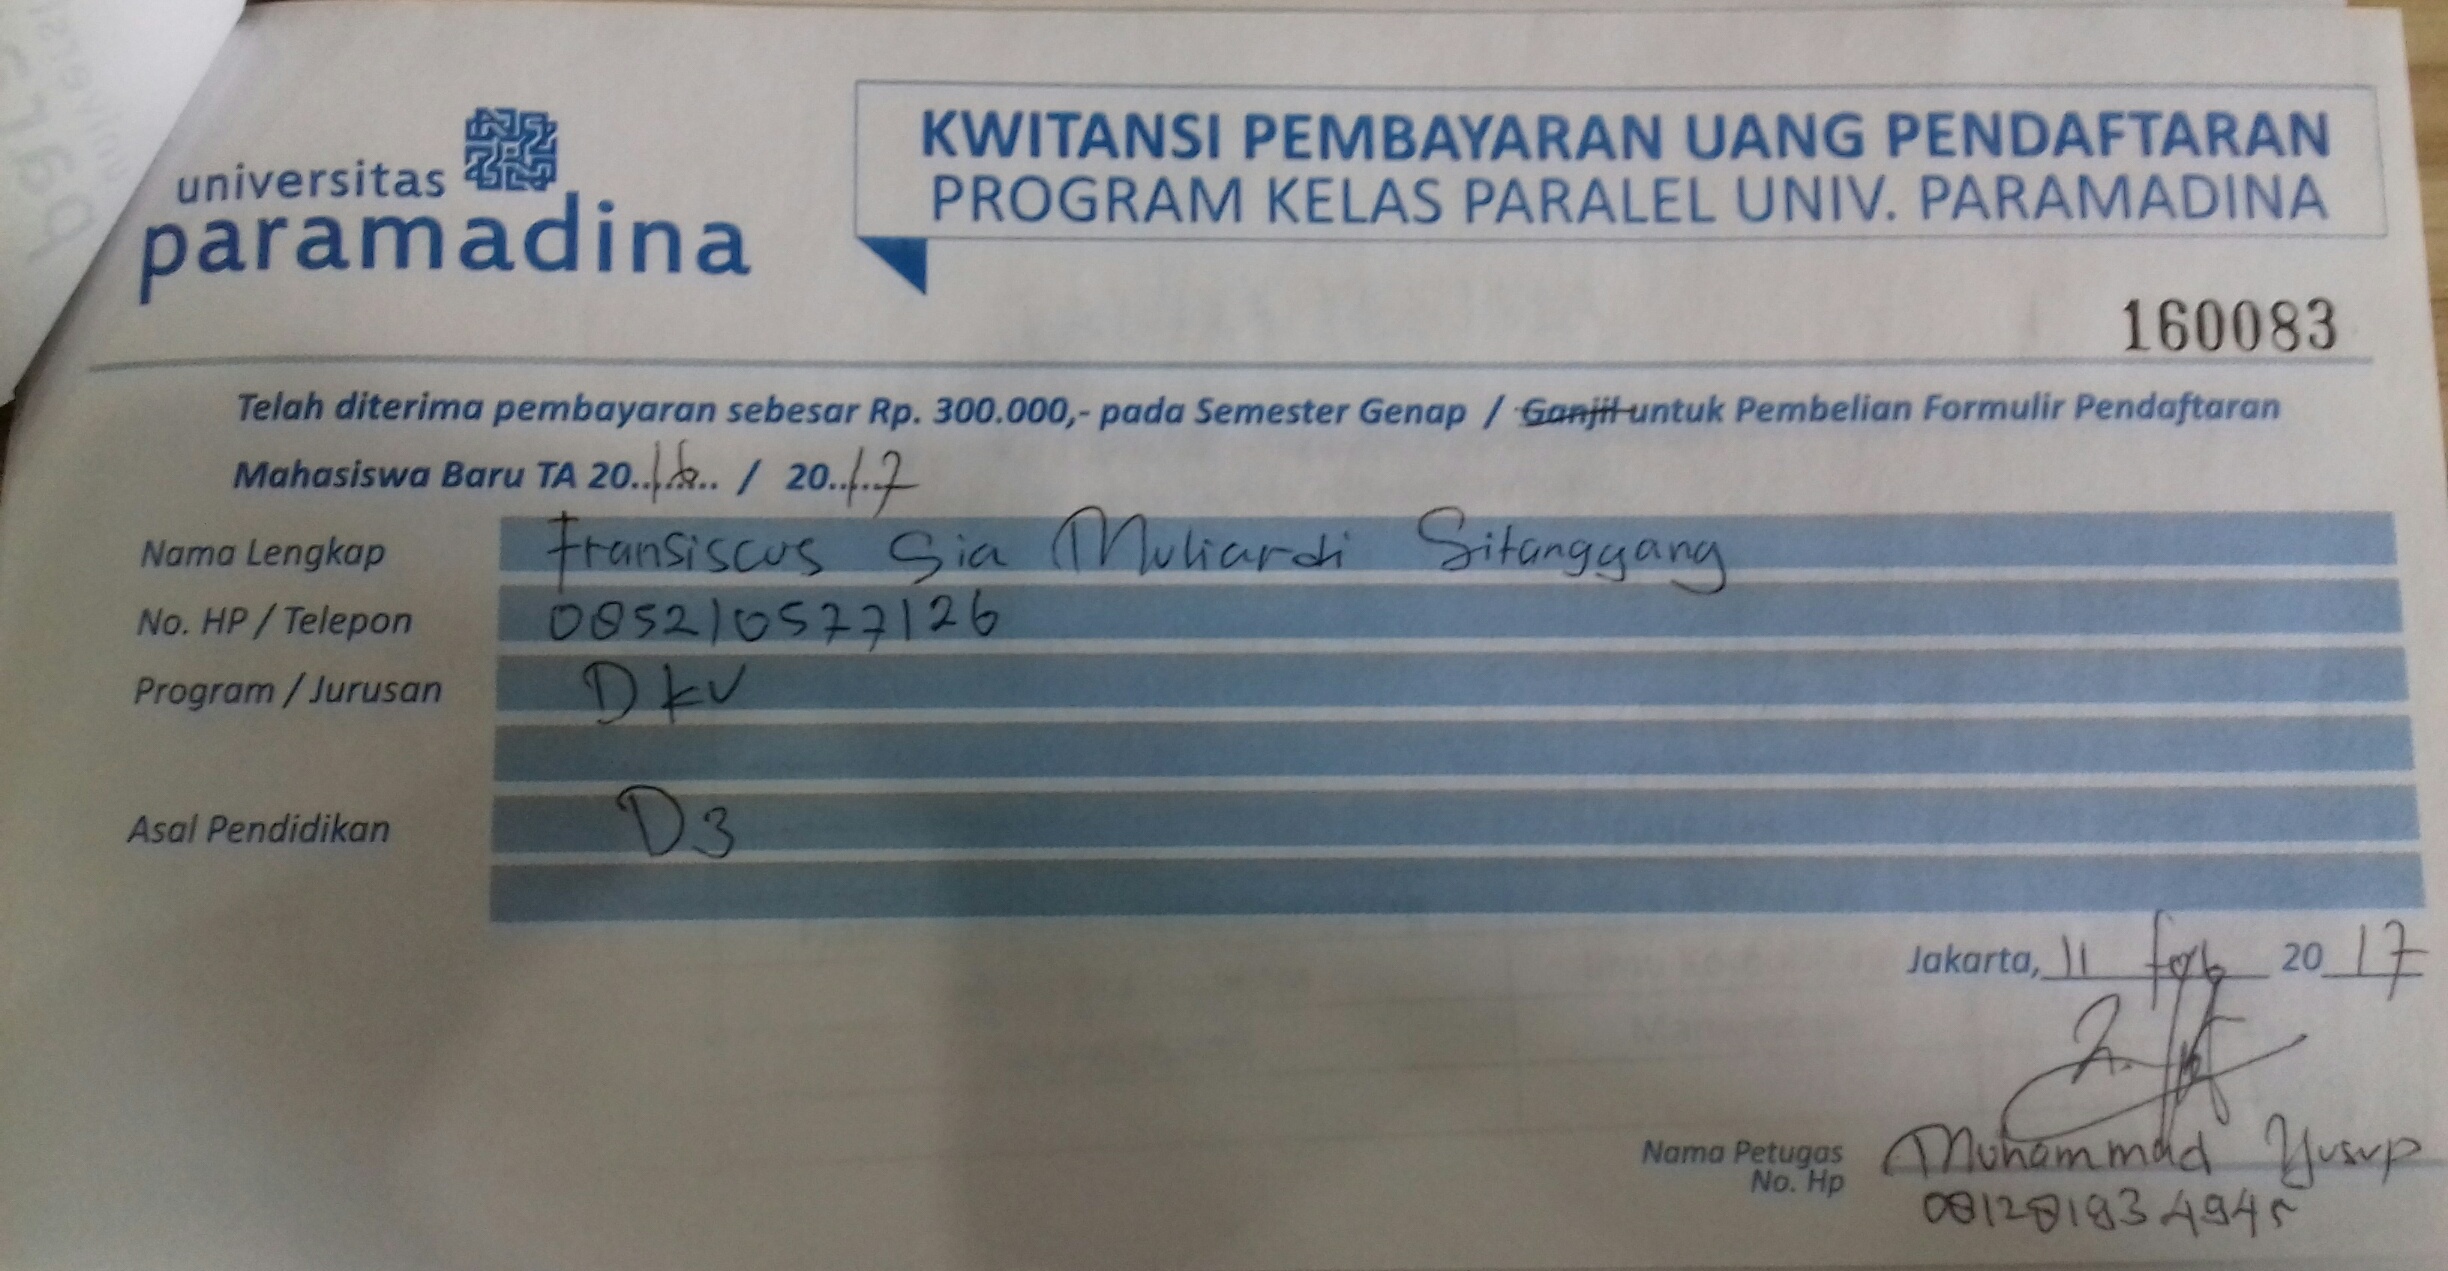 universitas
paramadina
KWITANSI PEMBAYARAN UANG PENDAFTARAN
PROGRAM KELAS PARALEL UNIV. PARAMADINA
160083
Telah diterima pembayaran sebesar Rp. 300.000,- pada Semester Genap / Ganjil untuk Pembelian Formulir Pendaftaran
Mahasiswa Baru TA 20..16.. / 20..17
Nama Lengkap Fransiscus Sia Muliardi Sitanggang
No. HP / Telepon 085210577126
Program / Jurusan DKV
Asal Pendidikan D3
Jakarta, 11 Feb 2017
Nama Petugas Muhammad Yusup
No. Hp 081281834945